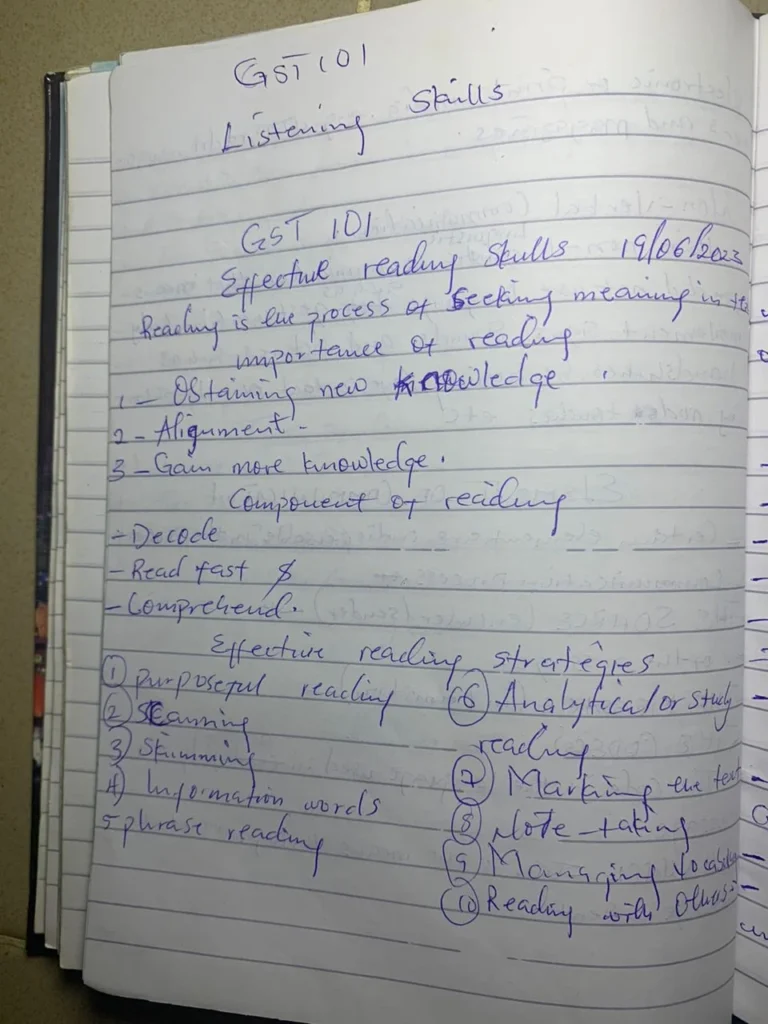 GST 101
Listening Skills
GST 101
Effective reading Skills 19/06/2023
Reading is the process of Seeking meaning in
importance of reading
1 - Obtaining new knowledge
2 - Alignment -
3 - Gain more knowledge.
Component of reading
- Decode
- Read fast &
- Comprehend.
Effective reading strategies
① purposeful reading
② Scanning
③ Skimming
④ Information words
5 phrase reading
⑥ Analytical or study
reading
⑦ Marking the text
⑧ Note-taking
⑨ Managing
⑩ Reading with Others